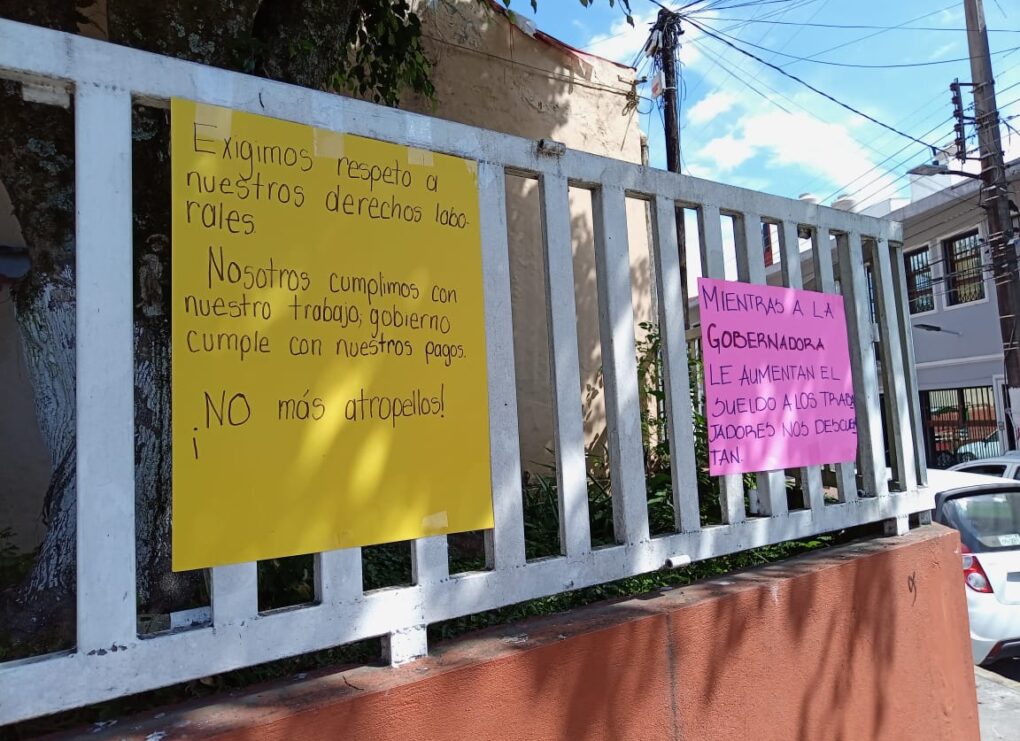 Exigimos respeto a
nuestros derechos labo-
rales.
Nosotros cumplimos con
nuestro trabajo, gobierno
cumple con nuestros pagos.
¡NO más atropellos!
MIENTRAS A LA
GOBERNADORA
LE AUMENTAN EL
SUELDO A LOS TRABA
JADORES NOS DESCUEN
TAN.